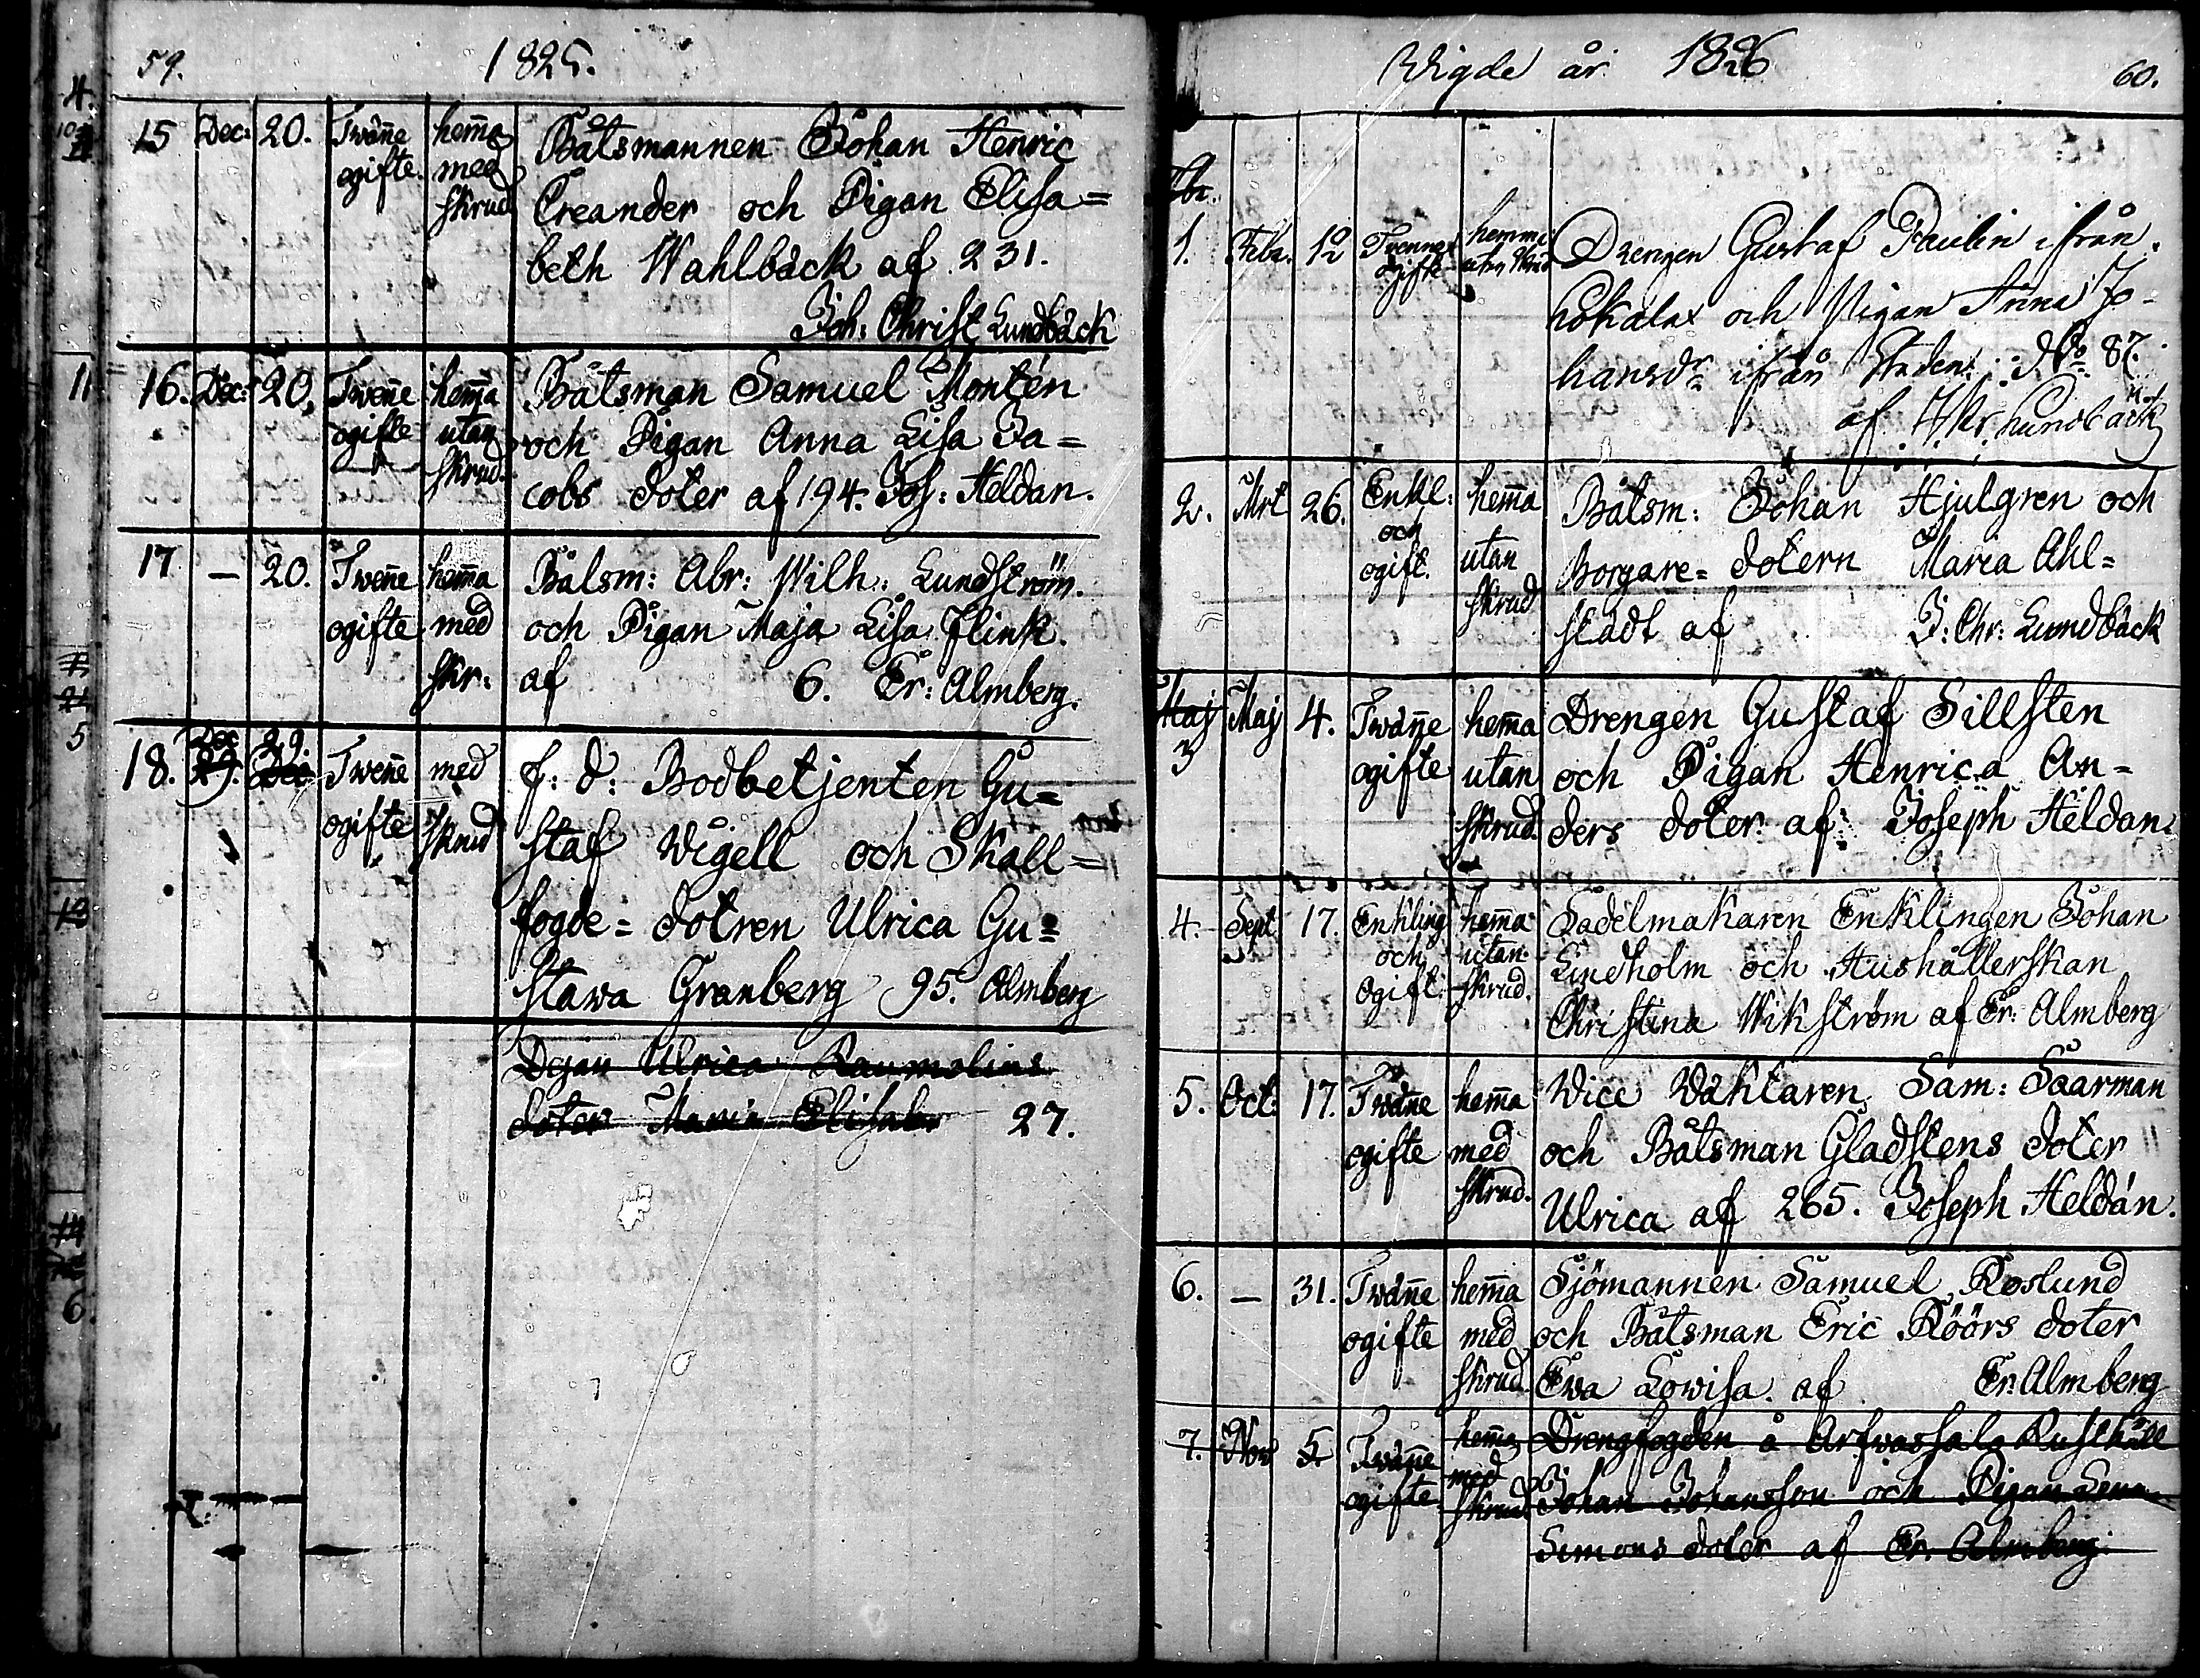 59. 1825.
15 Dec: 20. Twäñe ogifte. hem̃a med skrud Båtsmannen Johan Henric
Creander och Pigan Elisa=
beth Wahlbäck af 231.
Joh: Christ Lundbäck
16. Dec: 20. Tweñe ogifte hem̃a utan skrud. Båtsman Samuel Montén
och Pigan Anna Lisa Ja=
cobs doter af 194. Jos: Heldan.
17 — 20. Tweñe ogifte hem̃a med skr: Båtsm: Abr: Wilh: Lundström.
och Pigan Maja Lisa Flink.
af 6. Er: Almberg.
18. Dec 29. Tweñe ogifte med skrud f: d: Bodbetjenten Gu=
staf Wigell och Skall=
fogde= dotren Ulrica Gu=
stava Granberg 95. Almberg
Dejan Ulrica Raumolins
doter Maria Elisabe 27.
Wigde år 1826 60.
1. Febr. 12 Tvenne ogifte hemma utan skrud Drengen Gustaf Paulin ifrån
Hokalax och Pigan Anna Jo-
hansdr ifrån Staden No 87.
af Hr. Lundbäck
2. Mrt 26. Enkl: och ogift. hem̃a utan skrud Båtsm: Johan Hjulgren och
Borgare= dotern Maria Ahl=
städt af J: Chr: Lundbäck
Maj
3 Maj 4. Twäñe ogifte hem̃a utan skrud. Drengen Gustaf Sillsten
och Pigan Henrica An=
ders doter af: Joseph Heldan.
4. Sept 17. Enkling och ogift. hem̃a utan skrud. Sadelmakaren Enklingen Johan
Lindholm och Hushållerskan
Christina Wikström af Er: Almberg
5. Oct: 17. Twäñe ogifte hem̃a med skrud. Vice Vaktaren Sam: Saarman
och Båtsman Gladstens doter
Ulrica af 265. Joseph Heldán.
6. — 31. Twäñe ogifte hem̃a med skrud. Sjömannen Samuel Roslund
och Båtsman Eric Röörs doter
Eva Lowisa. af Er: Almberg
7. Nov 5 Twäñe ogifte hem̃a med skrud Drengfogden å Arfwassalo Rusthåll
Johan Johansson och Pigan Lena
Simons doter af Er. Almberg.